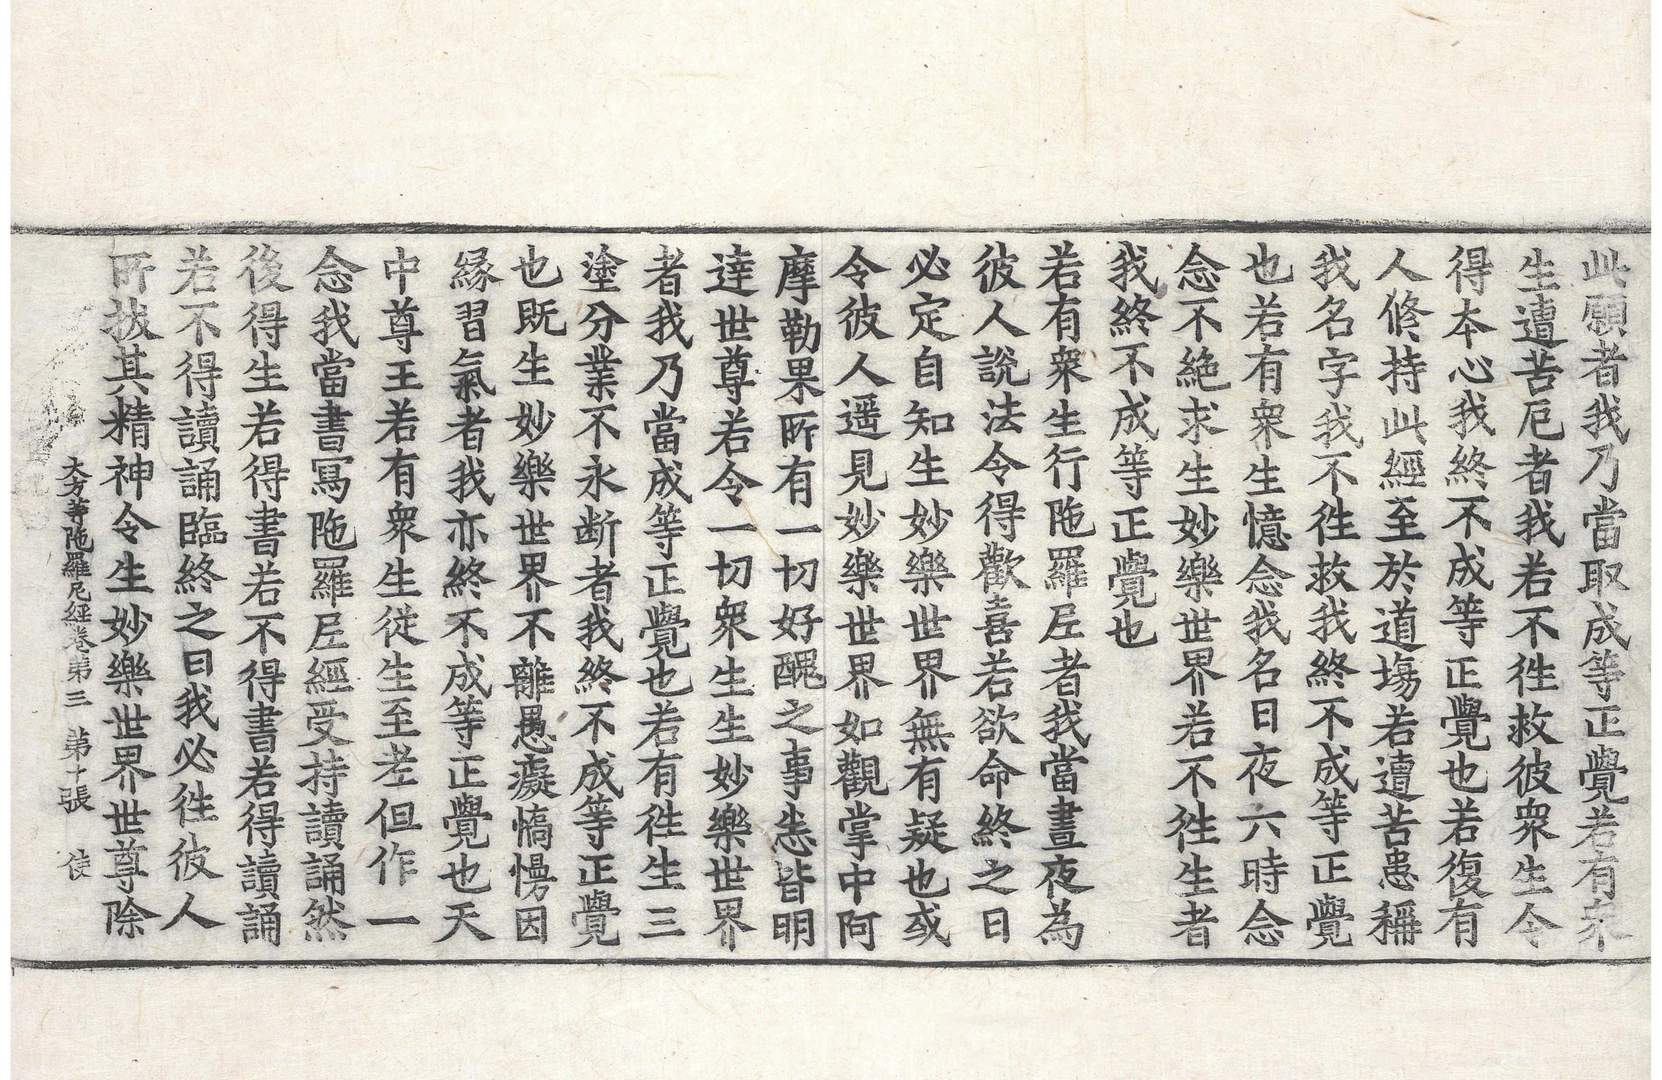 此願者我乃當取成等正覺若有衆
生遭苦厄者我若不徃救彼衆生令
得本心我終不成等正覺也若復有
人修持此經至於道場若遭苦患稱
我名字我不徃救我終不成等正覺
也若有衆生憶念我名日夜六時念
念不絶求生妙樂世界若不徃生者
我終不成等正覺也
若有衆生行陁羅尼者我當晝夜為
彼人說法令得歡喜若欲命終之日
必定自知生妙樂世界無有疑也或
令彼人遥見妙樂世界如觀掌中阿
摩勒果所有一切好醜之事悉皆明
達世尊若令一切衆生生妙樂世界
者我乃當成等正覺也若有徃生三
塗分業不永断者我終不成等正覺
也既生妙樂世界不離愚癡憍慢因
緣習氣者我亦終不成等正覺也天
中尊王若有衆生從生至老但作一
念我當書寫陁羅尼經受持讀誦然
後得生若得書若不得書若得讀誦
若不得讀誦臨終之日我必徃彼人
所拔其精神令生妙樂世界世尊除
大方等陁羅尼經卷第三 第十張 使